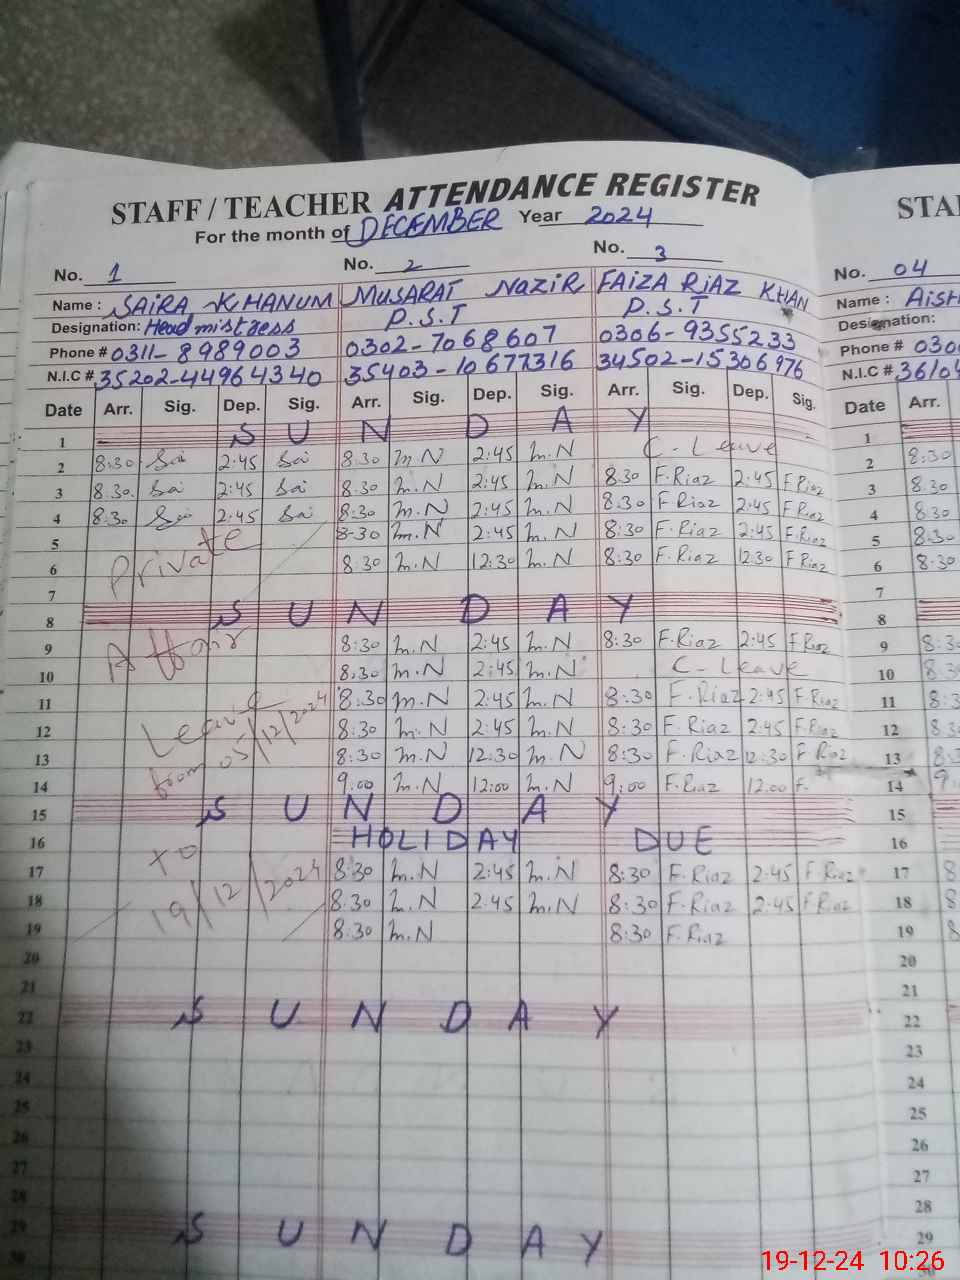 STAFF / TEACHER ATTENDANCE REGISTER
For the month of DECEMBER Year 2024
No. 1 No. 2 No. 3
Name : SAIRA KHANUM MUSARAT NAZIR FAIZA RIAZ KHAN
Designation: Head mistress P.S.T P.S.T
Phone # 0311-8989003 0302-7068607 0306-9355233
N.I.C # 35202-44964340 34502-15306976
Date Arr. Sig. Dep. Sig. Arr. Sig. Dep. Sig. Arr. Sig. Dep. Sig.
1 SUNDAY
2 8:30 Sai 2:45 Sai 8:30 m.N 2:45 m.N C-Leave
3 8:30 Sai 2:45 Sai 8:30 m.N 2:45 m.N 8:30 F.Riaz 2:45 F.Riaz
4 8:30 Sai 2:45 Sai 8:30 m.N 2:45 m.N 8:30 F Riaz 2:45 F.Riaz
5 Private 8-30 m.N 2:45 m.N 8:30 F.Riaz 2:45 F.Riaz
6 8:30 m.N 12:30 m.N 8:30 F.Riaz 12:30 F.Riaz
7
8 SUNDAY
9 Affair 8:30 m.N 2:45 m.N 8:30 F.Riaz 2:45 F Riaz
10 8:30 m.N 2:45 m.N C-Leave
11 Leave 8:30 m.N 2:45 m.N 8:30 F.Riaz 2:45 F.Riaz
12 from 05/12/2024 8:30 m.N 2:45 m.N 8:30 F.Riaz 2:45 F.Riaz
13 8:30 m.N 12:30 m.N 8:30 F.Riaz 12:30 F Riaz
14 9:00 m.N 12:00 m.N 9:00 F.Riaz 12:00 F.
15 SUNDAY
16 HOLIDAY DUE
17 to 8:30 m.N 2:45 m.N 8:30 F.Riaz 2:45 F.Riaz
18 19/12/2024 8:30 m.N 2:45 m.N 8:30 F.Riaz 2:45 F.Riaz
19 8:30 m.N 8:30 F.Riaz
20
21
22 SUNDAY
23
24
25
26
27
28
29 SUNDAY
30
No. 04
Name :
Designation:
Phone #
N.I.C #
Date Arr.
1
2 8:30
3 8:30
4 8:30
5 8:30
6 8:30
7
8
9
10
11
12
13
14
15
16
17
18
19
20
21
22
23
24
25
26
27
28
29
19-12-24 10:26